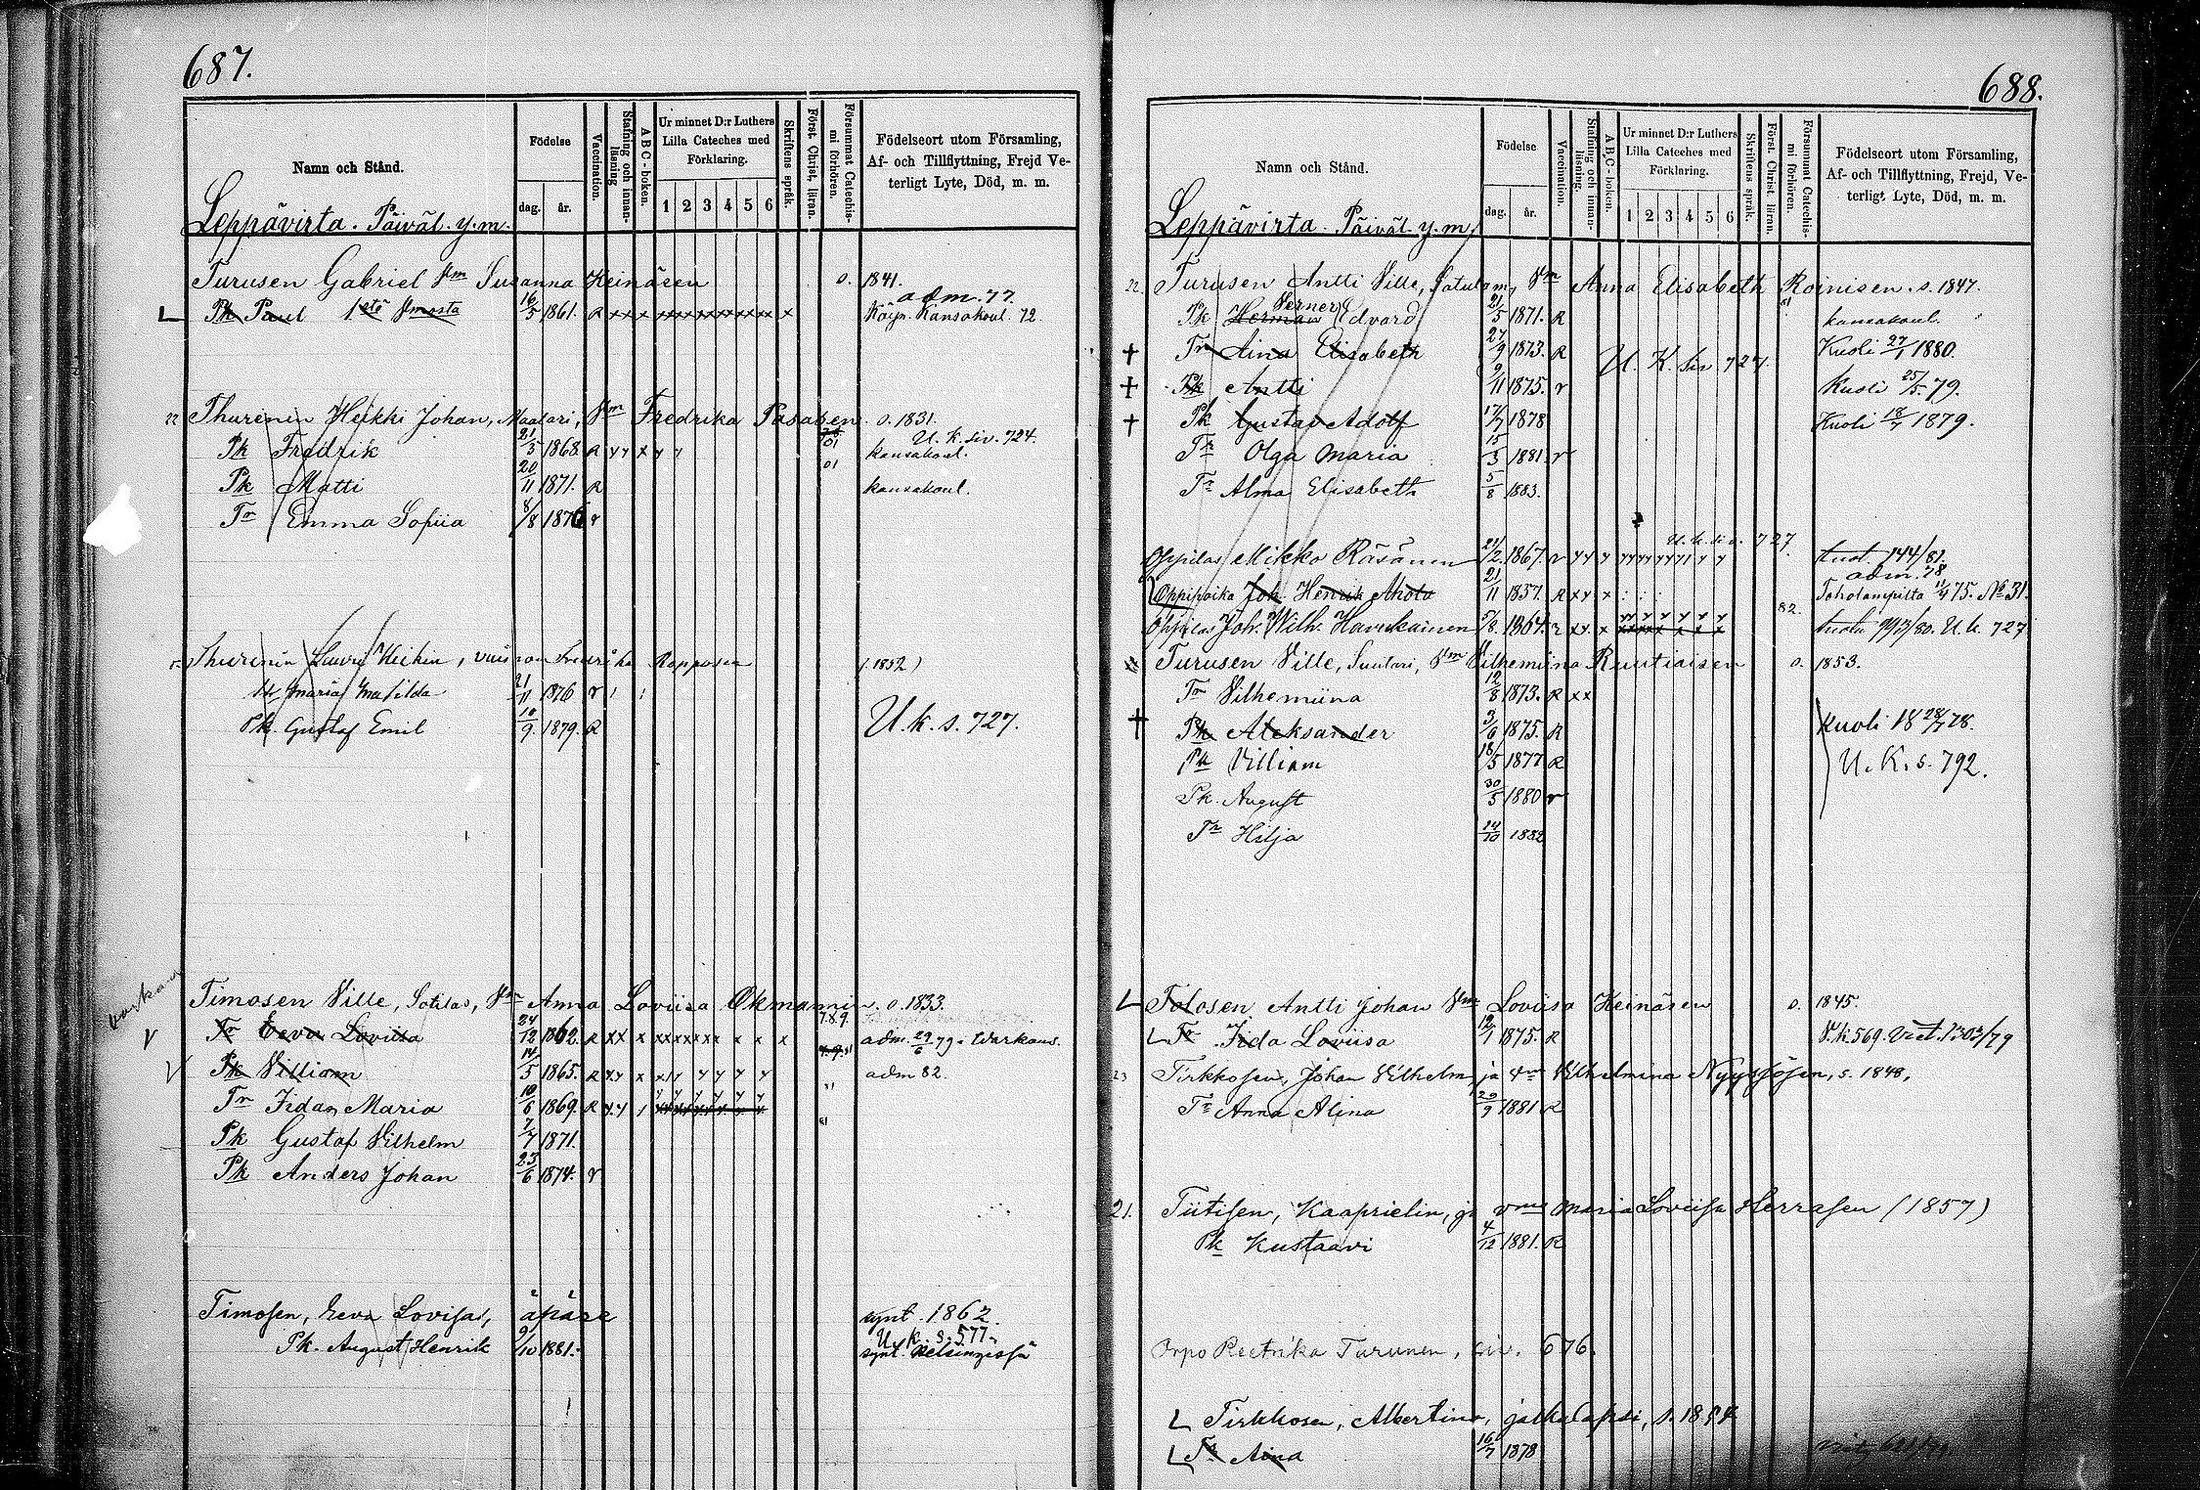 687.
Namn och Stånd.
Födelse
dag. år.
Vaccination.
Stafning och innanläsning
A B C - boken.
Ur minnet D:r Luthers Lilla Cateches med Förklaring.
1 2 3 4 5 6
Skriftens språk.
Först. Christ. läran.
Försummat Catechismi förhören.
Födelseort utom Församling, Af- och Tillflyttning, Frejd Veterligt Lyte, Död, m. m.
Leppävirta. Päiväl. y. m.
Turusen Gabriel Vm Susanna Keinäsen o. 1841.
Pk Paul 1stä Vmosta 16/5 1861. R x x x x adm. 77. Köyh. Kansakoul. 72.
22 Thurenin Heikki Johan, Maalari, Vm Fredrika Pasasen o. 1831.
Pk Fredrik 21/5 1868. R U. k. siv. 724. kansakoul.
Pk Matti 20/11 1871. R 01 kansakoul.
Tr Emma Sofiia 8/8 1876 r
Thurenin Lauri Heikin, Ropposen (1852)
Tr Maria Matilda 21/11 1876 r
Pk. Gustaf Emil 10/9. 1879. R U. k. s. 727.
Timosen Ville, Sotilas, Vm Anna Loviisa Okmannin. o. 1833.
V Tr Eeva Loviisa 24/12 1862. R x x x 7.8.9. adm. 29/6 79. Warkaus.
V Pk Villiam 14/5 1865. R adm 82.
Tr Iidan Maria 10/6 1869. R
Pk Gustaf Vilhelm 7/7 1871.
Pk Anders Johan 23/6 1874. r
Timosen, Eeva Lovisas, äpäre synt. 1862.
U. k. s. 577.
Pk. August Henrik 9/10 1881. synt. Helsingissä
688.
Namn och Stånd.
Födelse
dag. år.
Vaccination.
Stafning och innanläsning.
A B C - boken.
Ur minnet D:r Luthers Lilla Cateches med Förklaring.
1 2 3 4 5 6
Skriftens språk.
Först. Christ. läran.
Försummat Catechismi förhören.
Födelseort utom Församling, Af- och Tillflyttning, Frejd, Veterligt Lyte, Död, m. m.
Leppävirta. Päiväl. y. m.
22. Turusen Antti Ville, Satulam, Vm Anna Elisabeth Roinisen. s. 1847.
Pk Herman Verner Edvard 21/5 1871. R kansakoul.
† Tr Aina Elisabeth 27/9 1873. R U. K. siv 727. Kuoli 27/1 1880.
† Pk Antti 9/11 1875. r Kuoli 25/5 79.
† Pk Gustav Adolf 17/7 1878 Kuoli 18/7 1879.
Tr Olga Maria 15/5 1881. r
Tr Alma Elisabeth 5/8 1883.
Oppilas Mikko Räsänen 21/2 1867. r 727. 144/82.
adm. 78
Oppipoika Joh. Henrik Ahola 21/11 1857. R x x x Toholammilta 11/4 75. No 31.
Oppilas Joh. Wilh. Haukkainen 5/8. 1864. 82. 793/80. U. k. 727
Turusen Ville, Suutari, Vm Vilhemiina Ruutiaisen o. 1853.
Tr Vilhemiina 12/8 1873. R x x
† Pk Aleksander 3/6 1875. R Kuoli 18 28/7 78.
Pk Villiam 18/5 1877 R U. K. s. 792.
Pk. August 30/5 1880 r
Tr Hilja 14/10 1882
Tolosen Antti Johan Vm Loviisa Keinäsen o. 1845.
Tr Iida Loviisa 12/1 1875. R V. k. 569. 1303/79
23 Tirkkosen, Johan Vilhelm ja Vm Vilhelmina Nyyssösen, s. 1848,
Tr Anna Alina 29/9 1881 R
21. Tiitisen, Kaaprielin, ja vmo Maria Loviisa Herrasen (1857)
Pk Kustaavi 4/12 1881. R
Orpo Reetrika Turunen, siv. 676.
Tirkkosen, Albertina, jalkalapsi, s. 1854
Tr Aina 16/7 1878